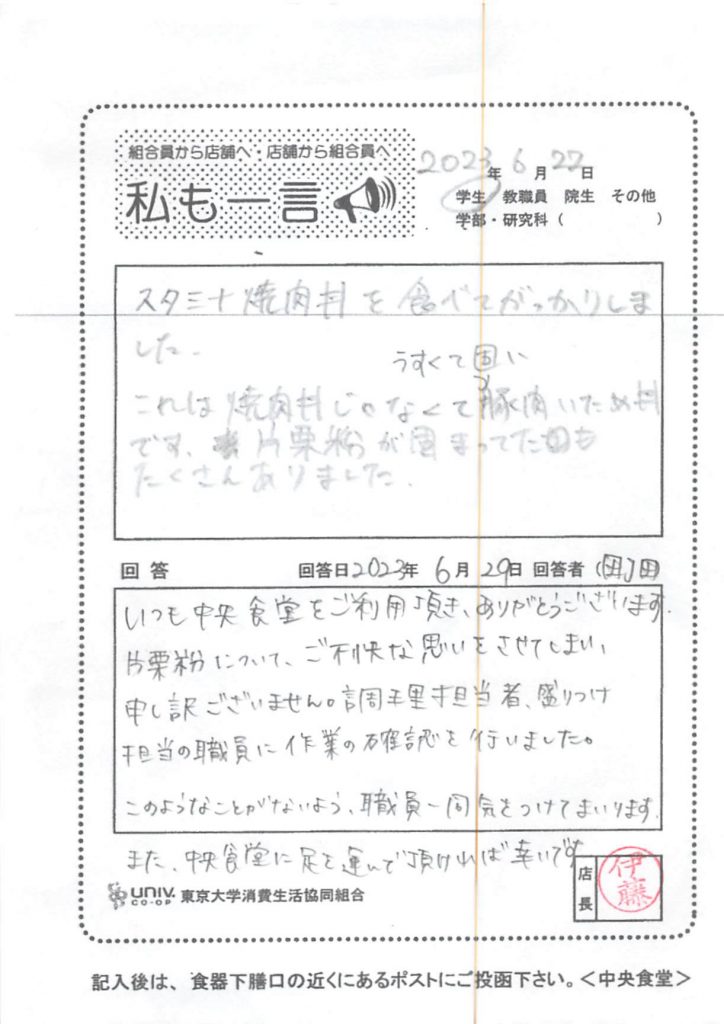 組合員から店舗へ・店舗から組合員へ
私も一言
2023年 6月 27日
学生 教職員 院生 その他
学部・研究科（ ）
スタミナ焼肉丼を食べてがっかりしま
した.
うすくて固い
これは焼肉丼じゃなくて豚肉いため丼
です. 片栗粉が固まってた
たくさんありました.
回答 回答日2023年 6月 29日 回答者（町田
いつも中央食堂をご利用頂き、ありがとうございます.
片栗粉について、ご不快な思いをさせてしまい、
申し訳ございません。調理担当者、盛りつけ
担当の職員に作業の確認を行いました。
このようなことがないよう、職員一同気をつけてまいります.
また、中央食堂に足を運んで頂ければ幸いです
店長
伊藤
UNIV.
CO-OP
東京大学消費生活協同組合
記入後は、食器下膳口の近くにあるポストにご投函下さい。＜中央食堂＞